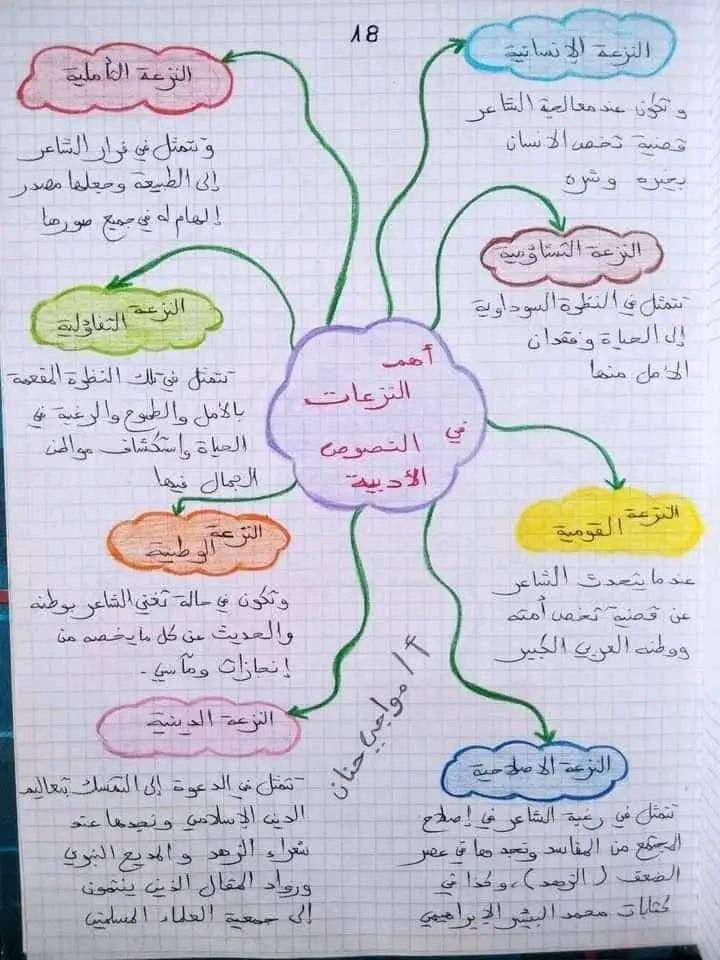 18
أهم
النزعات
في النصوص
الأدبية
النزعة الإنسانية
وتكون عند معالجة الشاعر
قضية تخص الانسان
بخيره وشره
النزعة التشاؤمية
تتمثل في النظرة السوداوية
إلى الحياة وفقدان
الأمل منها
النزعة القومية
عندما يتحدث الشاعر
عن قضية تخص أمته
ووطنه العربي الكبير
النزعة الاصلاحية
تتمثل في رغبة الشاعر في إصلاح
المجتمع من المفاسد ونجدها في عصر
الضعف (الزهد)، وكذا في
كتابات محمد البشير الإبراهيمي
النزعة التأملية
وتتمثل في فرار الشاعر
إلى الطبيعة وجعلها مصدر
إلهام له في جميع صورها
النزعة التفاؤلية
تتمثل في تلك النظرة المفعمة
بالأمل والطموح والرغبة في
الحياة واستكشاف مواطن
الجمال فيها
النزعة الوطنية
وتكون في حالة تغني الشاعر بوطنه
والحديث عن كل ما يخصه من
إنجازات ومآسي.
النزعة الدينية
تتمثل في الدعوة إلى التمسك بتعاليم
الدين الإسلامي ونجدها عند
شعراء الزهد والمديح النبوي
ورواد المقال الذين ينتمون
إلى جمعية العلماء المسلمين
أ/ مواجي حنان